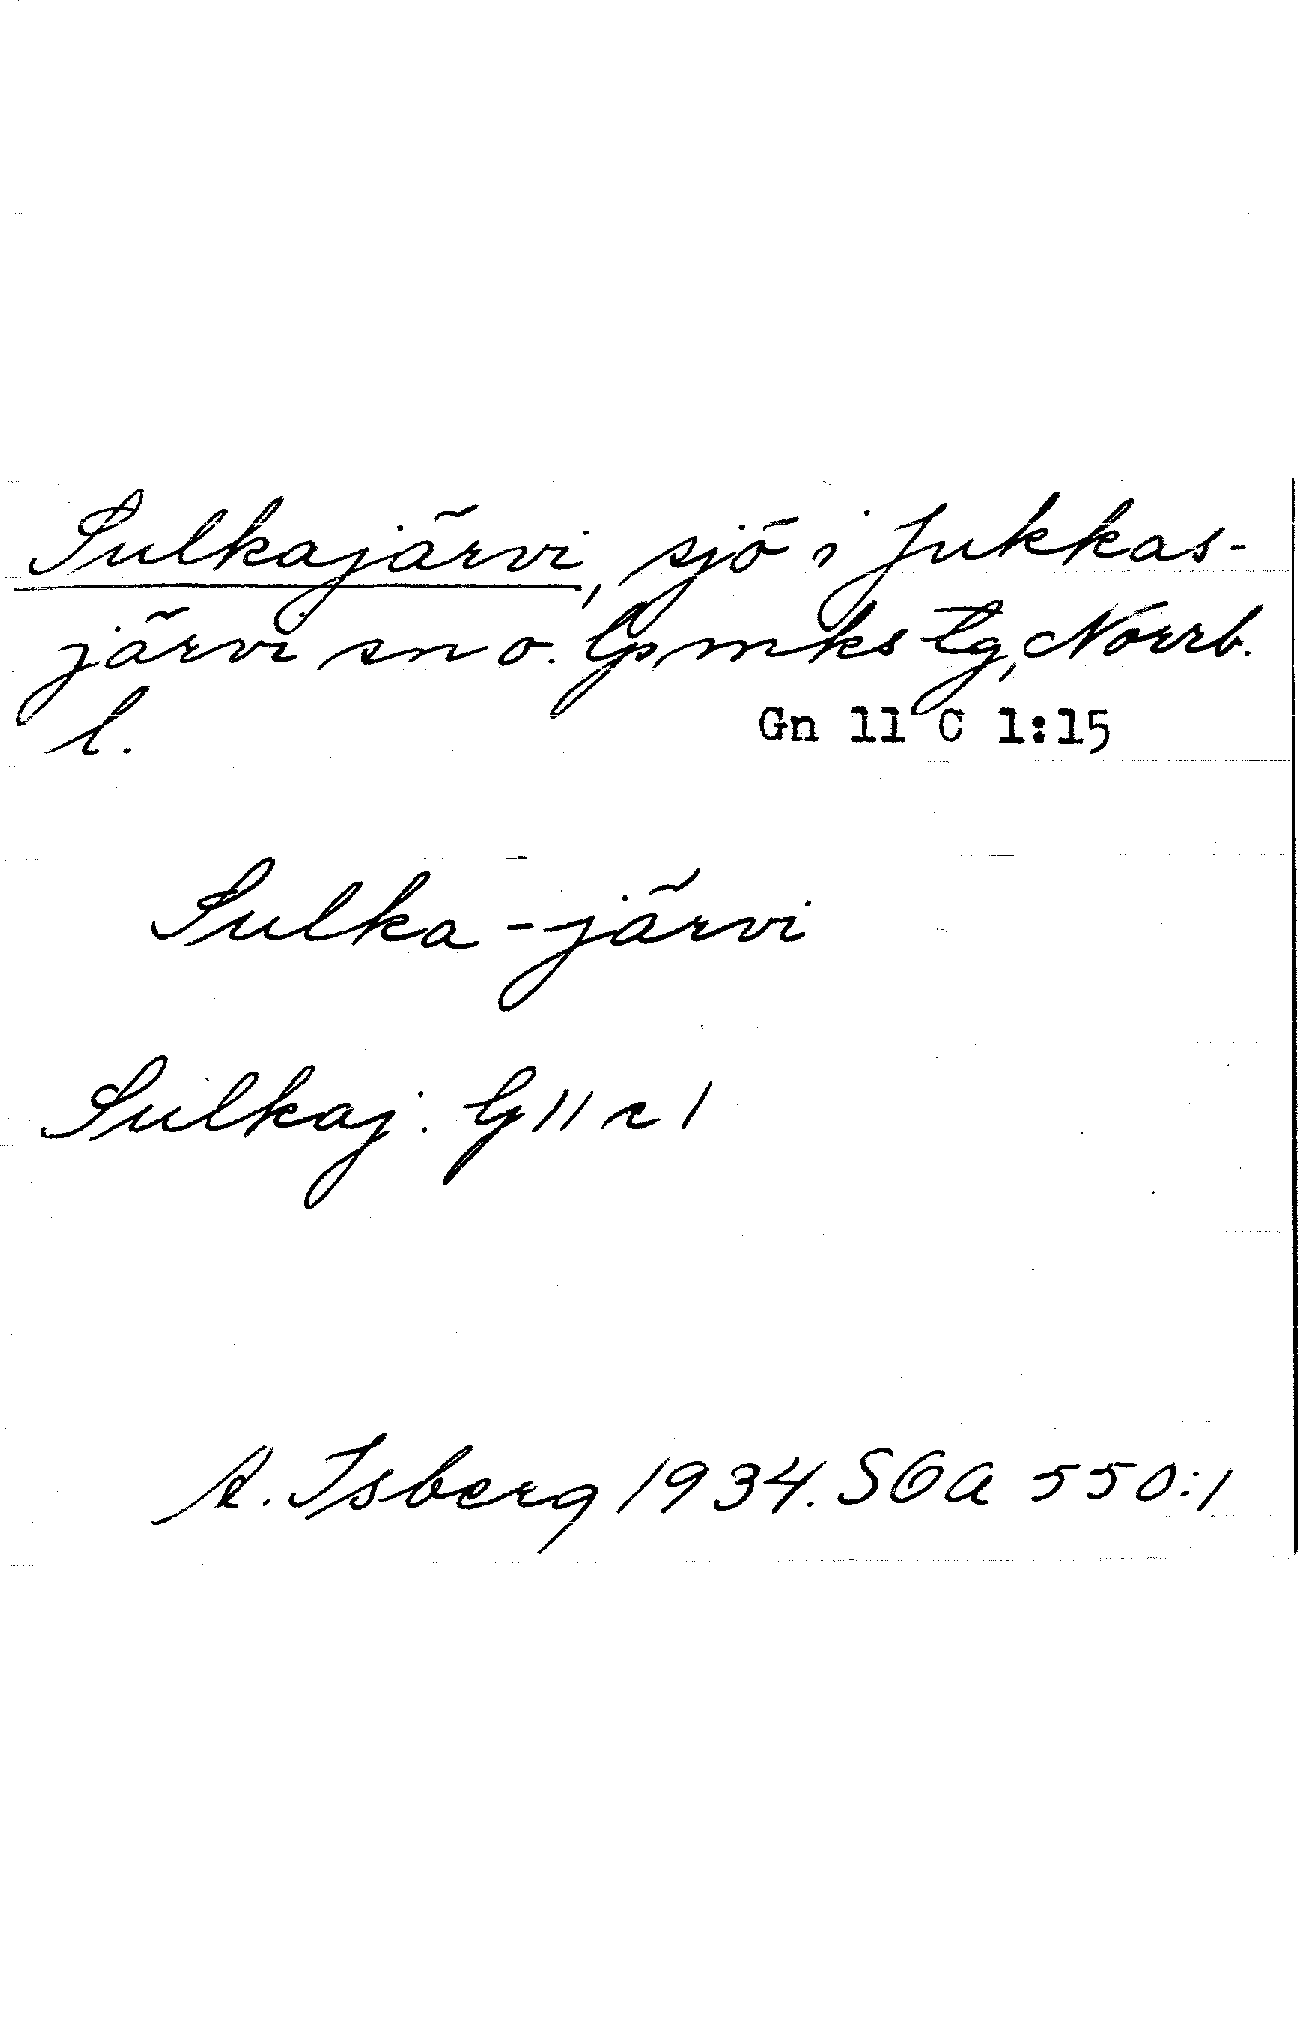 Sulkajärvi, sjö i Jukkas-
järvi sn o. lpmks tg, Norrb.
l. Gn 11 C 1:15
Sulka-järvi
Sulkaj. G 11 c 1
A. Isberg 1934. SOA 550:1